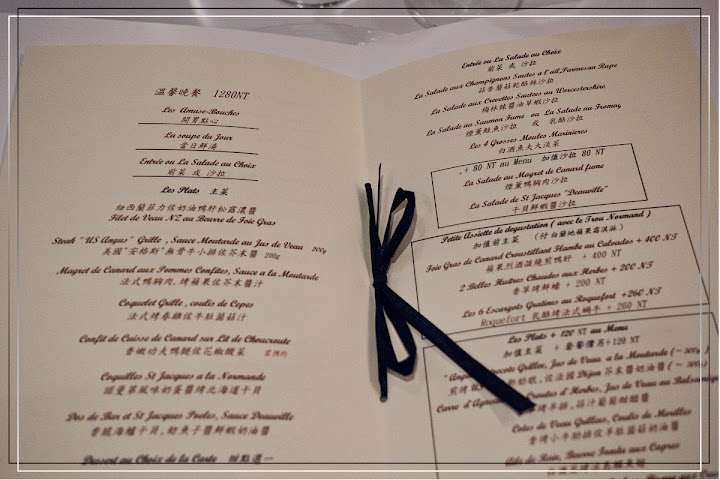 溫馨晚餐 1280NT
Les Amuse-Bouches
開胃點心
La soupe du Jour
當日鮮湯
Entrée ou La Salade au Choix
前菜 或 沙拉
Les Plats 主菜
紐西蘭菲力佐奶油鴨肝松露濃醬
Filet de Veau NZ au Beurre de Foie Gras
Steak "US Angus" Grille , Sauce Moutarde au Jus de Veau 200g
美國"安格斯"無骨牛小排佐芥末醬 200g
Magret de Canard aux Pommes Confites, Sauce a la Moutarde
法式鴨胸肉,烤蘋果佐芥末醬汁
Coquelet Grille , coulis de Cepes
法式烤春雞佐牛肚菌菇汁
Confit de Cuisse de Canard sur Lit de Choucroute
香嫩功夫鴨腿佐花椒酸菜
Coquilles St Jacques a la Normande
諾曼第風味奶蛋醬烤北海道干貝
Dos de Bar et St Jacques Poeles, Sauce Deauville
香脆海鱸干貝,魴魚子醬鮮蝦奶油醬
Dessert au Choix de la Carte 甜點選一
Entrée ou La Salade au Choix
前菜 或 沙拉
La Salade aux Champignons Sautes a l'ail,Parmesan Rape
蒜香蘑菇乾酪絲沙拉
La Salade aux Crevettes Sautees au Worcestershire
梅林辣醬油草蝦沙拉
La Salade au Saumon Fume ou La Salade au Fromag
煙薰鮭魚沙拉 或 乳酪沙拉
Les 4 Grosses Moules Marinieres
白酒魚夫大淡菜
+ 80 NT au Menu 加值沙拉 80 NT
La Salade au Magret de Canard fume
煙薰鴨胸肉沙拉
La Salade de St Jacques "Deauville"
干貝鮮蝦醬沙拉
Petite Assiette de degustation ( avec le Trou Normand )
加值前主菜 (付白蘭地蘋果霜淇淋)
Foie Gras de Canard Croustillant Flambe au Calvados + 400 NT
蘋果烈酒誠燒煎鴨肝 + 400 NT
2 Belles Huitres Chaudes aux Herbes + 200 NT
香草烤鮮蠔 + 200 NT
Les 6 Escargots Gratines au Roquefort +260 NT
Roquefort 乳酪烤法式蝸牛 + 260 NT
Les Plats + 120 NT au Menu
加值主菜 + 套餐價另+120 NT
Entrecote Grillee, Jus de Veau a la Moutarde (~ 300g )
佐法國 Dijon 芥末醬奶油醬 (~ 300g)
Croutes d'Herbes, Jus de Veau au Balsamiqu
烤羊排,蒜汁葡萄甜醋醬
Cotes de Veau Grillees, Coulis de Morilles
香烤小牛肋排佐羊肚菌菇奶油醬
Aile de Raie, Beurre Fondu aux Capres